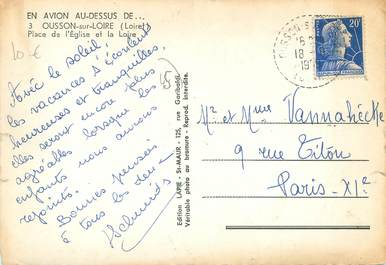 EN AVION AU-DESSUS DE...
3 OUSSON-sur-LOIRE (Loiret)
Place de l'Église et la Loire
10 €
Avec le soleil
les vacances s'écoulent
heureuses et tranquilles,
elles seront encore plus
agréables lorsque les
enfants nous auront
rejoints.
Bonnes pensées
à tous les deux
Edition LAPIE - St-MAUR - 125, rue Garibaldi.
Véritable photo au bromure - Reprod. interdite.
OUSSON
18
20F
Mr et Mme Vannahécke
9 rue Titon
Paris-XIe